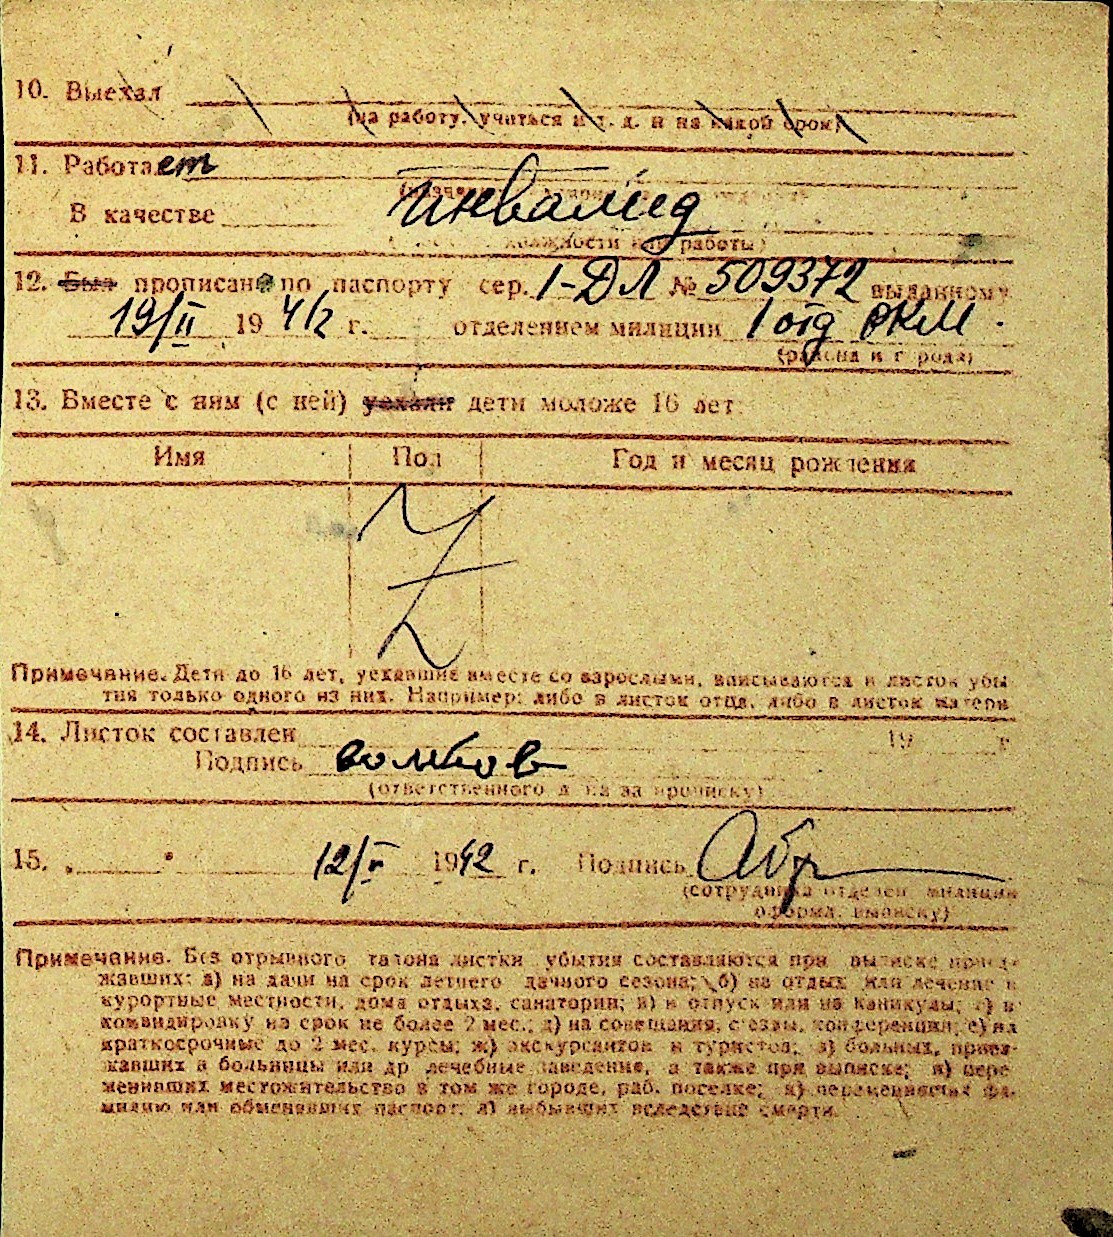 10. Выехал
(на работу, учиться и т. д. и на какой срок)
11. Работает
В качестве инвалид
должности или работы)
12. Был прописан по паспорту сер. I-ДЛ № 509372 выданному
19/II 1942 г. отделением милиции 1 отд РКМ.
(района и города)
13. Вместе с ним (с ней) уехали дети моложе 16 лет
Имя Пол Год и месяц рождения
Z
Примечание. Дети до 16 лет, уехавшие вместе со взрослыми, вписываются в листок убы
тия только одного из них. Например: либо в листок отца, либо в листок матери
14. Листок составлен 19 г
Подпись волков
(ответственного за прописку)
15. „ " 12/V 1942 г. Подпись
(сотрудника отделен. милиции
оформл. выписку)
Примечание. Без отрывного талона листки убытия составляются при выписке приез-
жавших: а) на дачи на срок летнего дачного сезона; б) на отдых или лечение в
курортные местности, дома отдыха, санатории; в) в отпуск или на каникулы; г) в
командировку на срок не более 2 мес.; д) на совещания, съезды, конференции; е) на
краткосрочные до 2 мес. курсы; ж) экскурсантов и туристов; з) больных, приез-
жавших в больницы или др лечебные заведения, а также при выписке; и) пере
менивших местожительство в том же городе, раб. поселке; к) переменивших фа-
милию или обменявших паспорт; л) выбывших вследствие смерти.